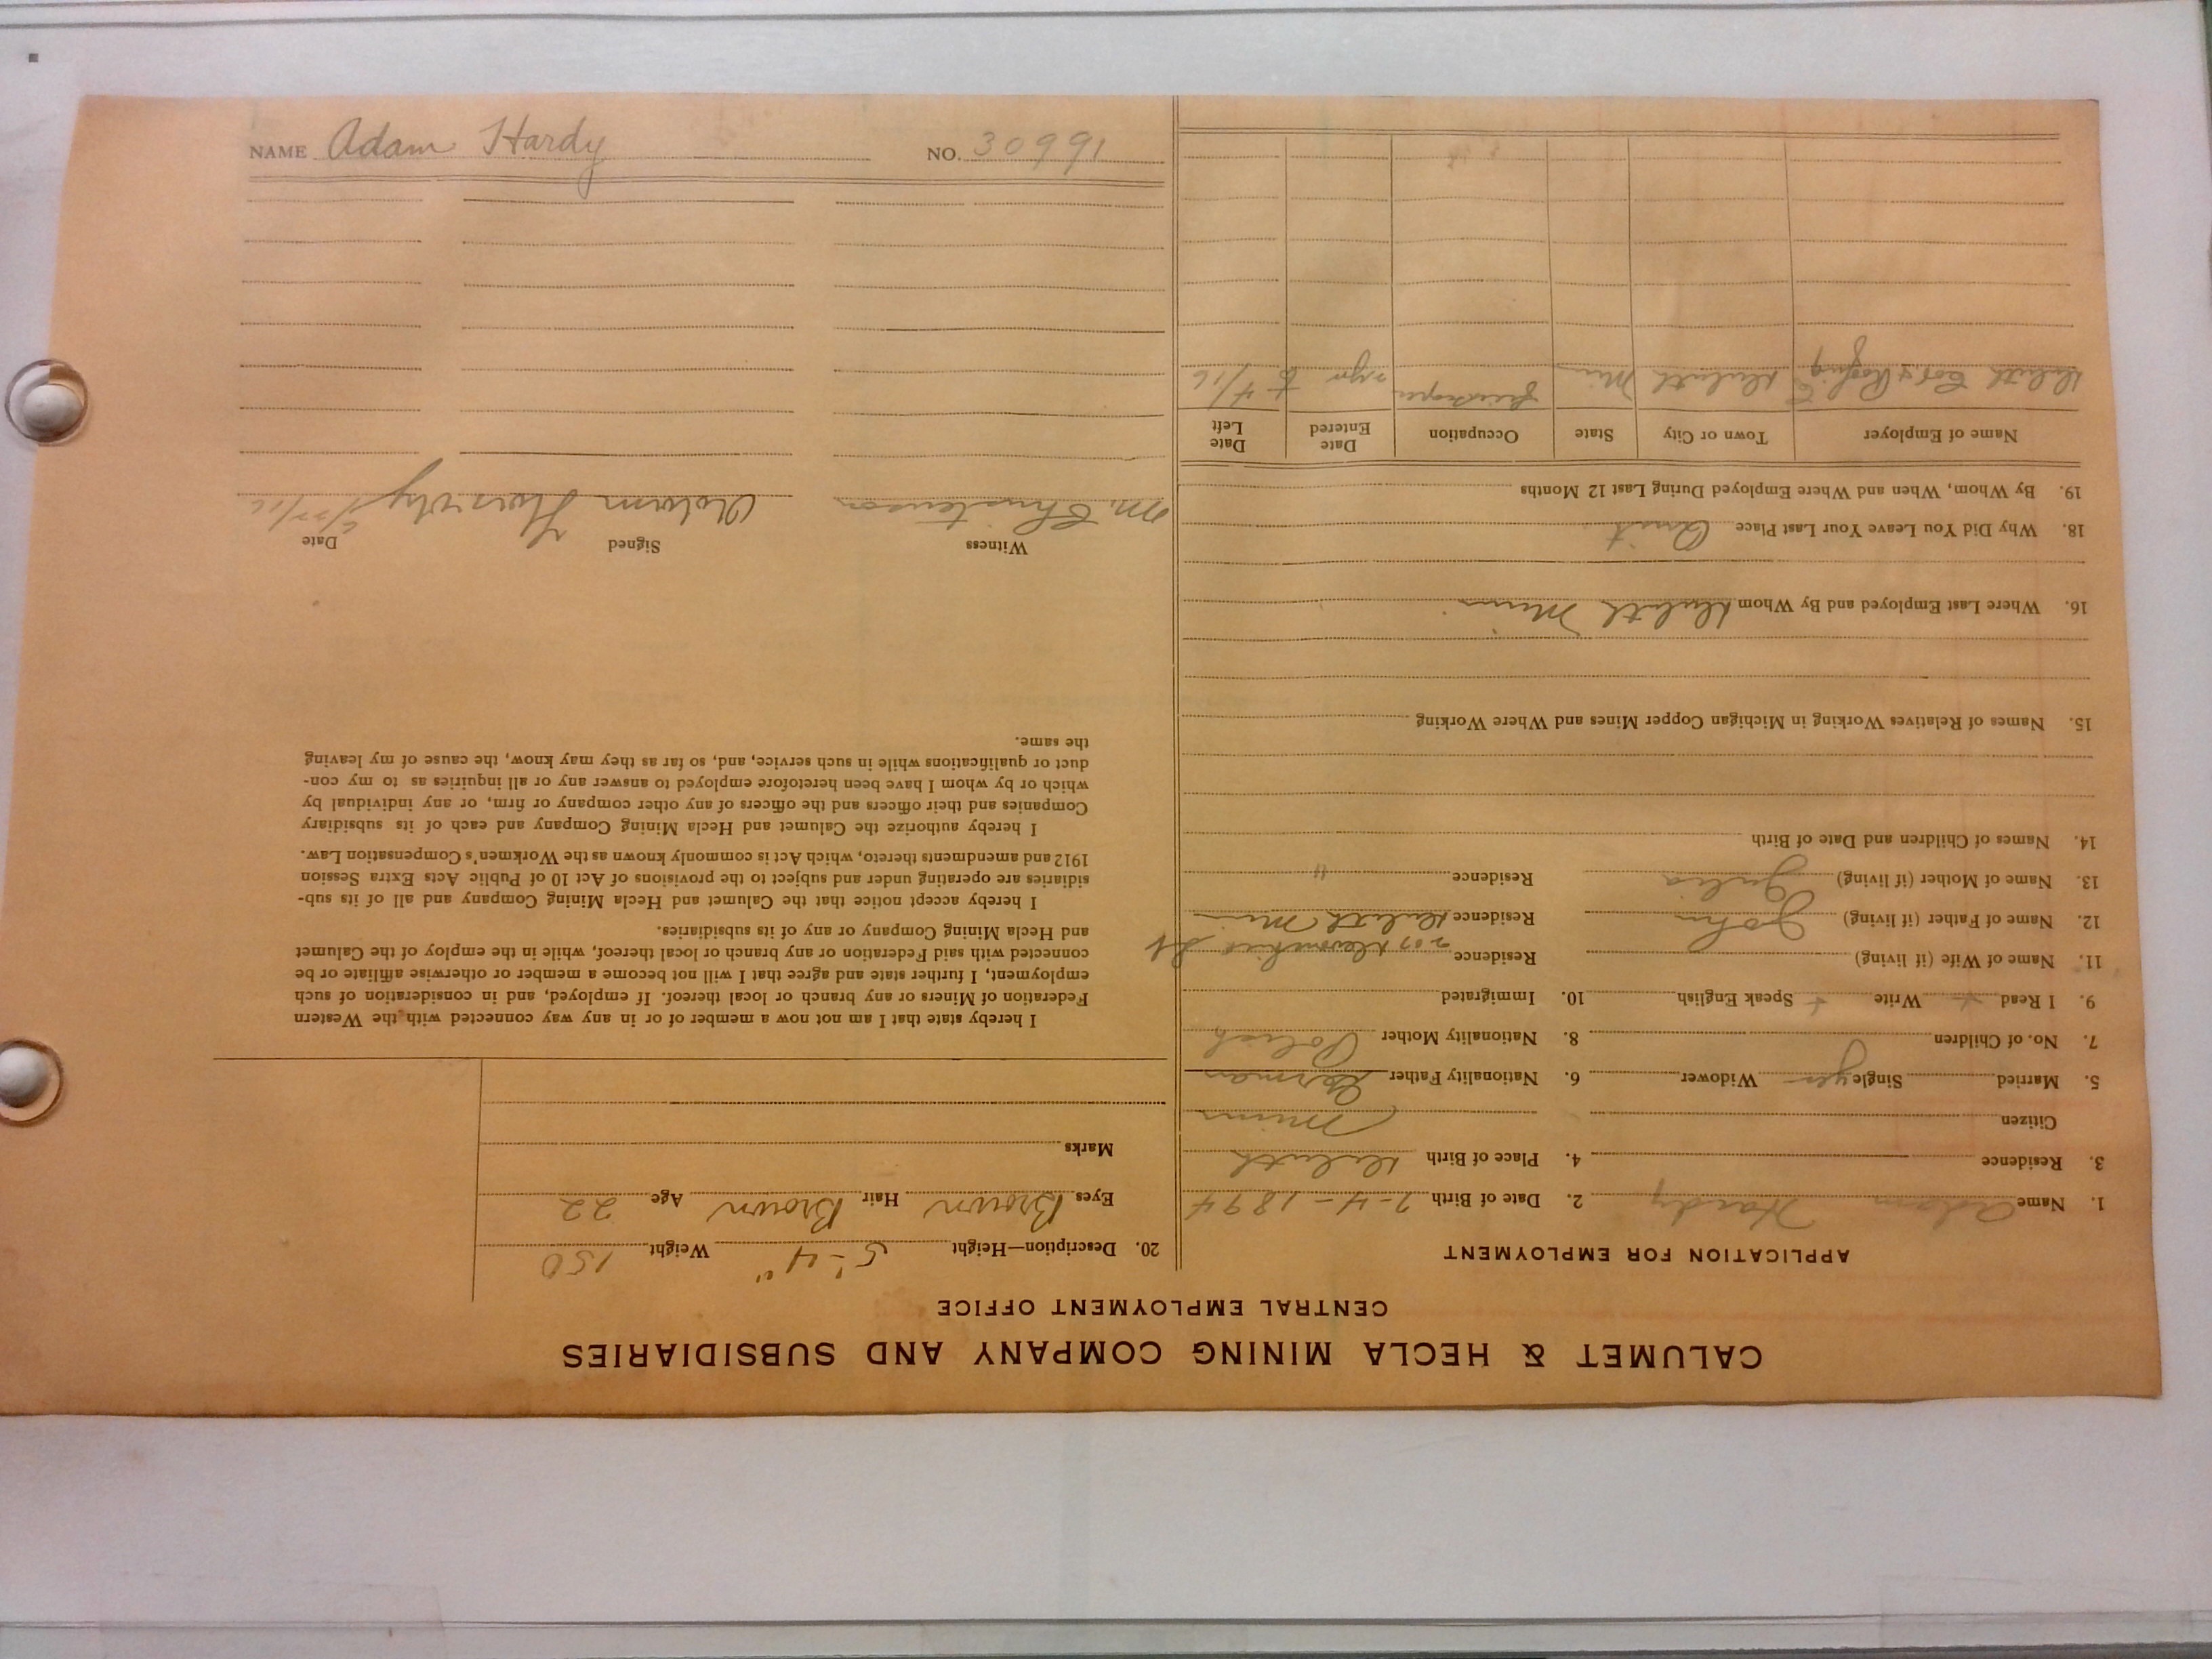 CALUMET & HECLA MINING COMPANY AND SUBSIDIARIES
CENTRAL EMPLOYMENT OFFICE
APPLICATION FOR EMPLOYMENT
1. Name Adam Hardy 2. Date of Birth 7-4-1894
3. Residence 4. Place of Birth Duluth
Citizen Minn
5. Married Single yes Widower 6. Nationality Father German
7. No. of Children 8. Nationality Mother Polish
9. I Read + Write + Speak English 10. Immigrated
11. Name of Wife (if living) Residence 207 St
12. Name of Father (if living) John Residence Duluth Min
13. Name of Mother (if living) Julia Residence "
14. Names of Children and Date of Birth
15. Names of Relatives Working in Michigan Copper Mines and Where Working
16. Where Last Employed and By Whom Duluth Minn
18. Why Did You Leave Your Last Place Quit
19. By Whom, When and Where Employed During Last 12 Months
Name of Employer Town or City State Occupation Date Entered Date Left
Duluth Cor & Roofing Co Duluth Min 2 yr 4/16
20. Description—Height 5'-4" Weight 150
Eyes Brown Hair Brown Age 22
Marks
I hereby state that I am not now a member of or in any way connected with the Western
Federation of Miners or any branch or local thereof. If employed, and in consideration of such
employment, I further state and agree that I will not become a member or otherwise affiliate or be
connected with said Federation or any branch or local thereof, while in the employ of the Calumet
and Hecla Mining Company or any of its subsidiaries.
I hereby accept notice that the Calumet and Hecla Mining Company and all of its sub-
sidiaries are operating under and subject to the provisions of Act 10 of Public Acts Extra Session
1912 and amendments thereto, which Act is commonly known as the Workmen's Compensation Law.
I hereby authorize the Calumet and Hecla Mining Company and each of its subsidiary
Companies and their officers and the officers of any other company or firm, or any individual by
which or by whom I have been heretofore employed to answer any or all inquiries as to my con-
duct or qualifications while in such service, and, so far as they may know, the cause of my leaving
the same.
Witness Signed Date
M. Christenson Adam Hardy 6/27/16
NAME Adam Hardy NO. 30991